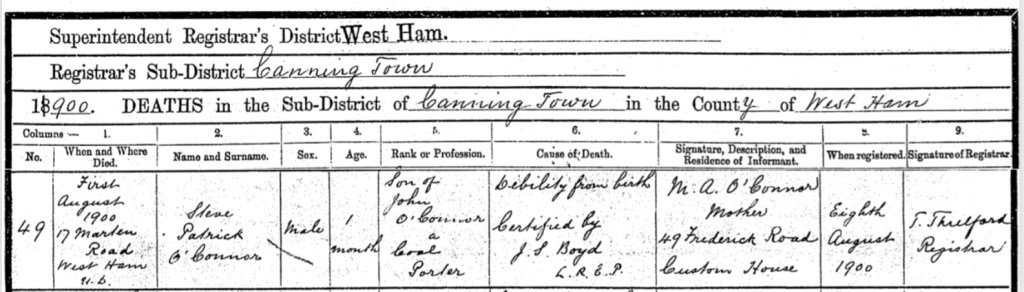 Superintendent Registrar's District West Ham.
Registrar's Sub-District Canning Town
1900. DEATHS in the Sub-District of Canning Town in the County of West Ham
Columns :— 1. 2. 3. 4. 5. 6. 7. 8. 9.
No. When and Where Died. Name and Surname. Sex. Age. Rank or Profession. Cause of Death. Signature, Description, and Residence of Informant. When registered. Signature of Registrar.
49
First
August
1900
17 Marten
Road
West Ham
U.D.
Steve
Patrick
O'Connor
Male
1
month
Son of
John
O'Connor
a
Coal
Porter
Debility from birth
Certified by
J. S. Boyd
L.R.C.P.
M. A. O'Connor
Mother
49 Frederick Road
Custom House
Eighth
August
1900
T. Thulford
Registrar